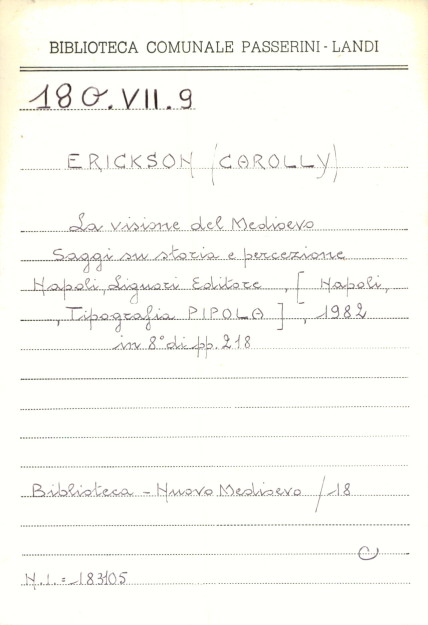 BIBLIOTECA COMUNALE PASSERINI - LANDI
180.VII.9
ERICKSON (CAROLLY)
La visione del Medioevo
Saggi su storia e percezione
Napoli, Liguori Editore , [ Napoli,
, Tipografia PIPOLA ] , 1982
in 8° di pp. 218
Biblioteca - Nuovo Medioevo / 18
N.I. = 183105